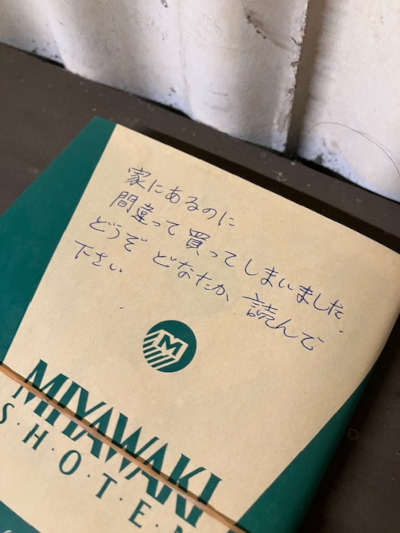 家にあるのに
間違って買ってしまいました.
どうぞ どなたか 読んで
下さい
M
MIYAWAKI
S·H·O·T·E